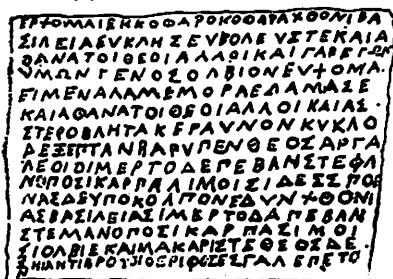 ΕΡΧΟΜΑΙΕΚΚΟΘΑΡΟΚΟΘΑΡΑΧΘΟΝΙΒΑ
ΣΙΛΕΙΑΕΥΚΛΗΣΕΥΒΟΛΕΥΣΤΕΚΑΙΑ
ΘΑΝΑΤΟΙΘΕΟΙΑΛΛΟΙΚΑΙΓΑΡΕΓΩΝ
ΥΜΩΝΓΕΝΟΣΟΛΒΙΟΝΕΥΧΟΜΑ
ΕΙΜΕΝΑΛΑΜΕΜΟΡΑΕΔΑΜΑΣΕ
ΚΑΙΑΘΑΝΑΤΟΙΘΕΟΙΑΛΛΟΙΚΑΙΑΣ
ΣΤΕΡΟΒΛΗΤΑΚΕΡΑΥΝΟΝΚΥΚΛΟ
ΔΕΞΕΠΤΑΝΒΑΡΥΠΕΝΘΕΟΣΑΡΓΑ
ΛΕΟΙΟΙΜΕΡΤΟΔΕΠΕΒΑΝΣΤΕΦΑ
ΝΟΠΟΣΙΚΑΡΠΑΛΙΜΟΙΣΙΔΕΣΣΠΟΙ
ΝΑΣΔΕΥΠΟΚΟΛΠΟΝΕΔΥΝΧΘΟΝΙ
ΑΣΒΑΣΙΛΕΙΑΣΙΜΕΡΤΟΔΑΠΕΒΑΝ
ΣΤΕΜΑΝΟΠΟΣΙΚΑΡΠΑΣΙΜΟΙ
ΣΙΟΛΒΙΕΚΑΙΜΑΚΑΡΙΣΤΕΘΕΟΣΔΕ